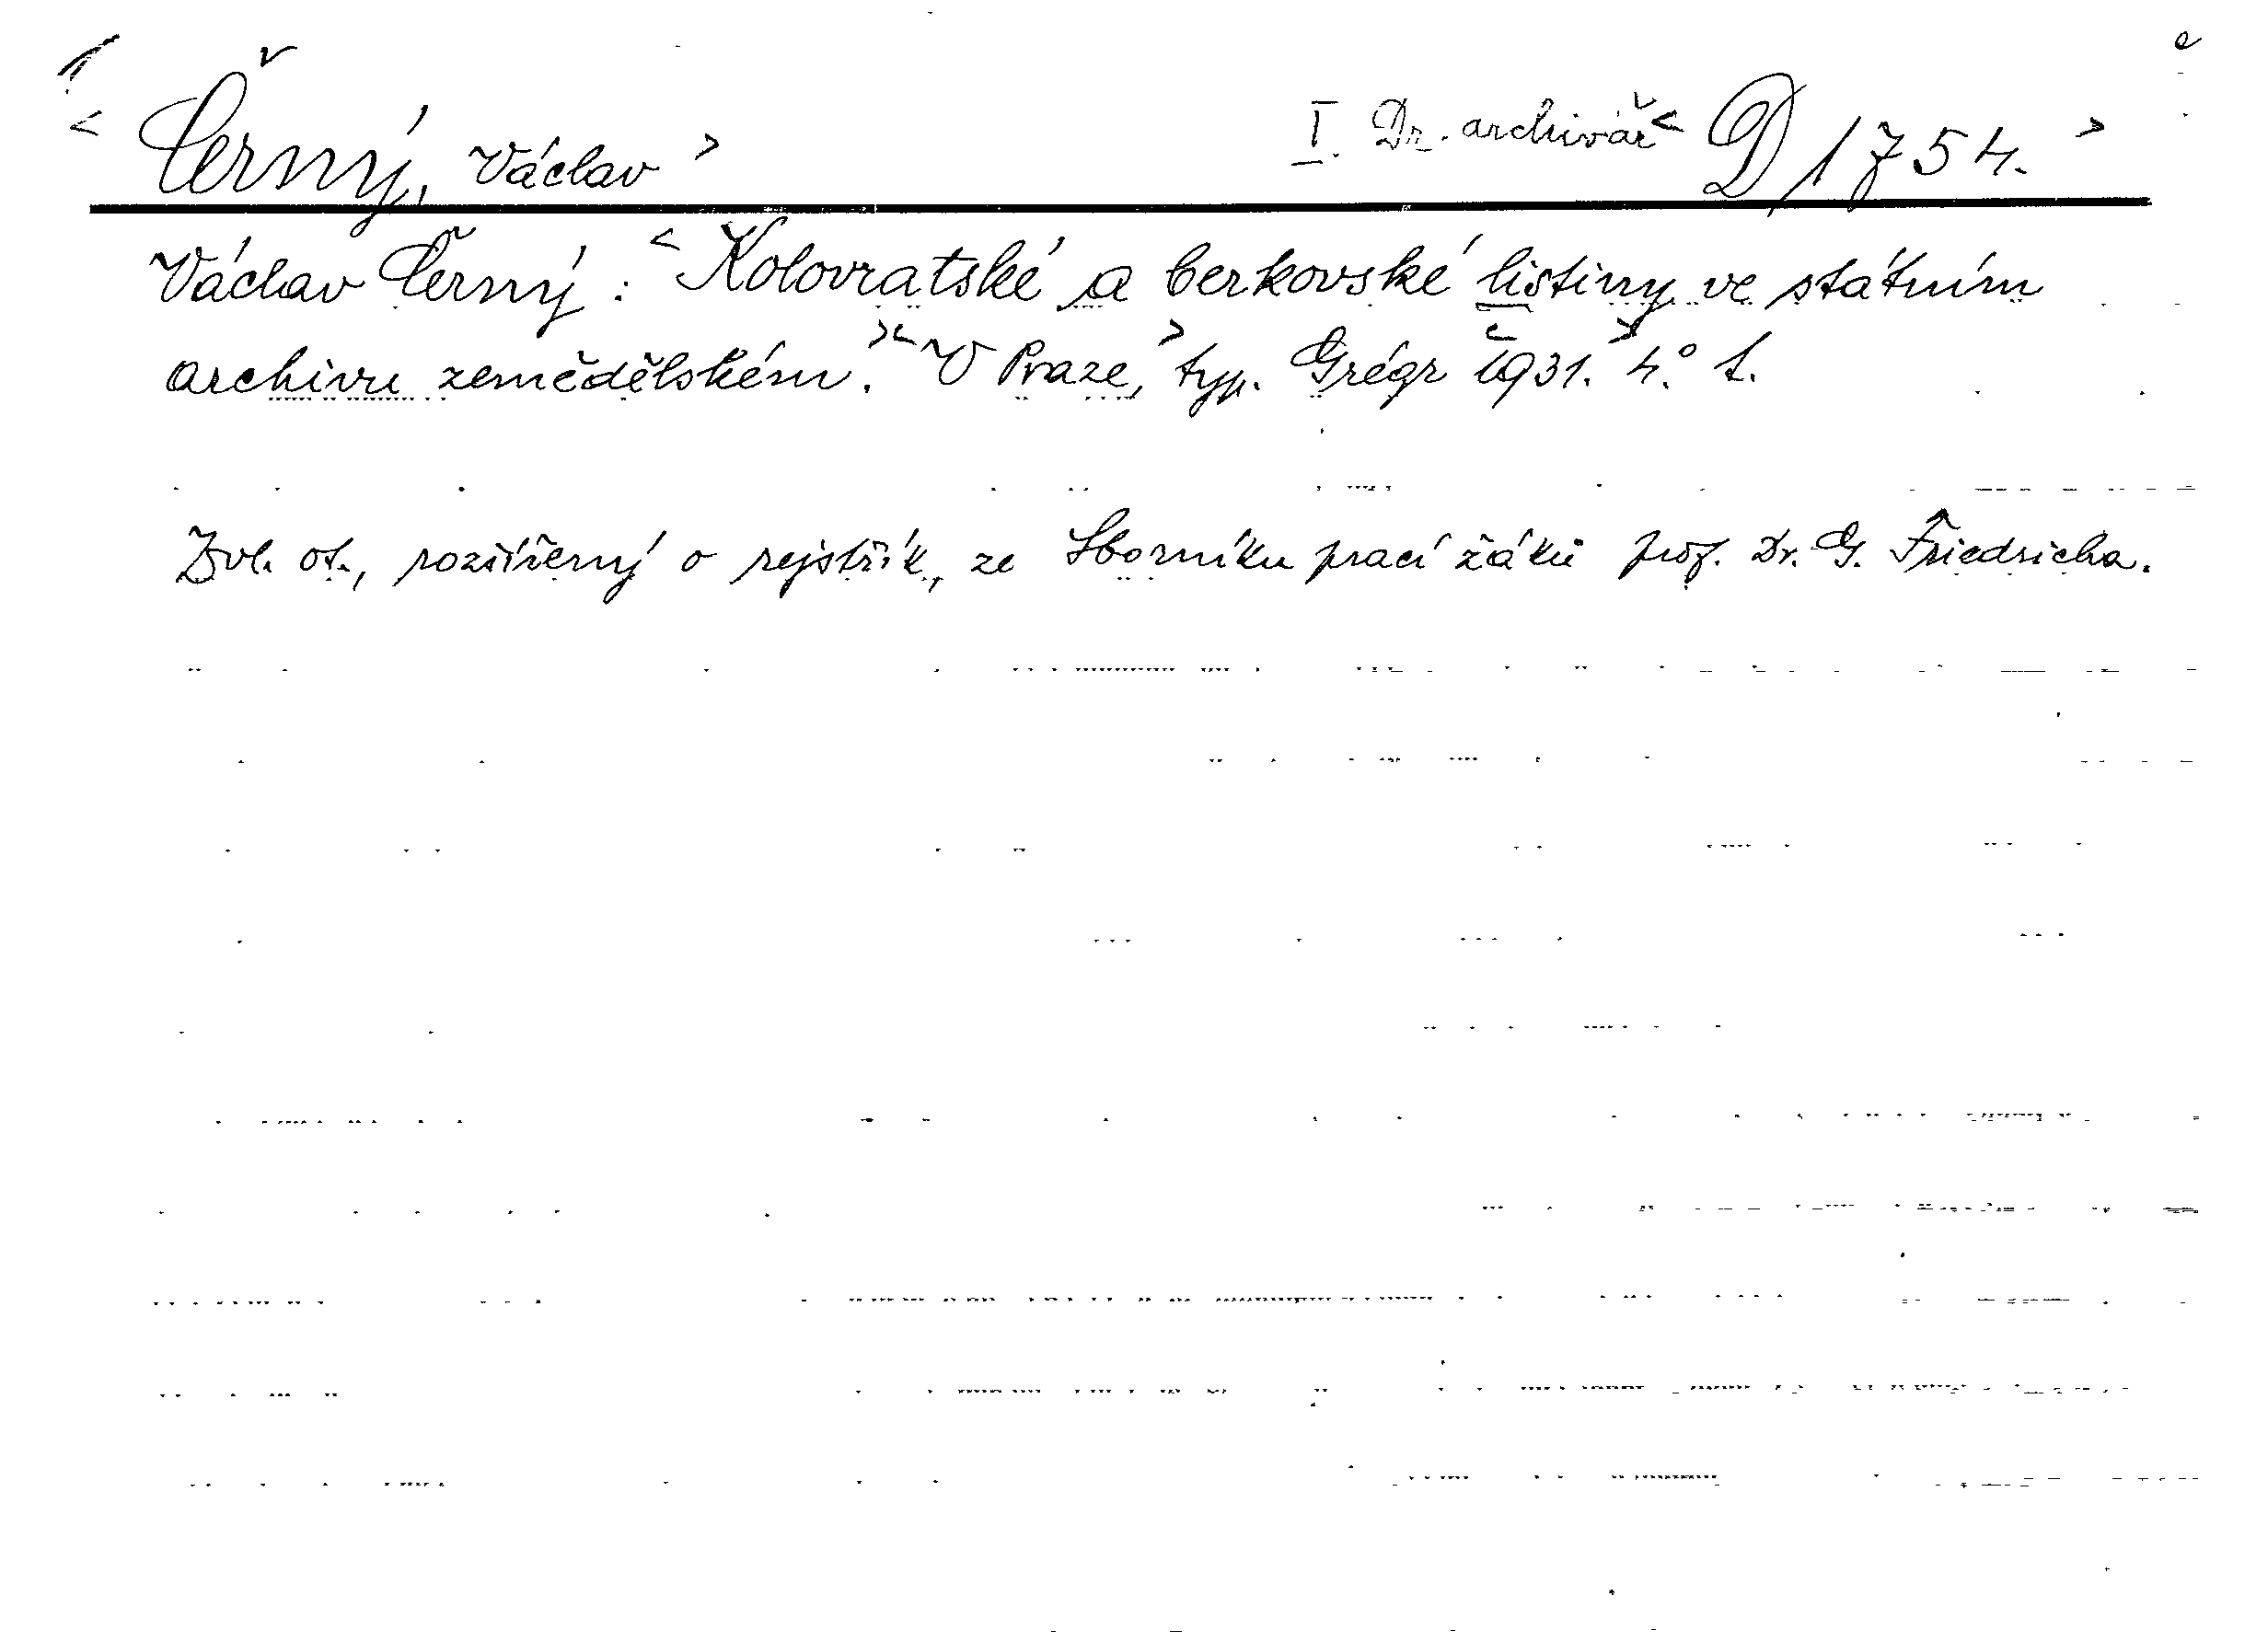 < Černý, Václav > I. Dr. archivář < D 1754. >
Václav Černý: < Kolovratské a berkovské listiny ve státním
archivu zemědělském. >< V Praze, > typ. Grégr < 1931. > 4.° t.
Zvl. ot., rozšířený o rejstřík, ze Sborníku prací žáků prof. Dr. G. Friedricha.